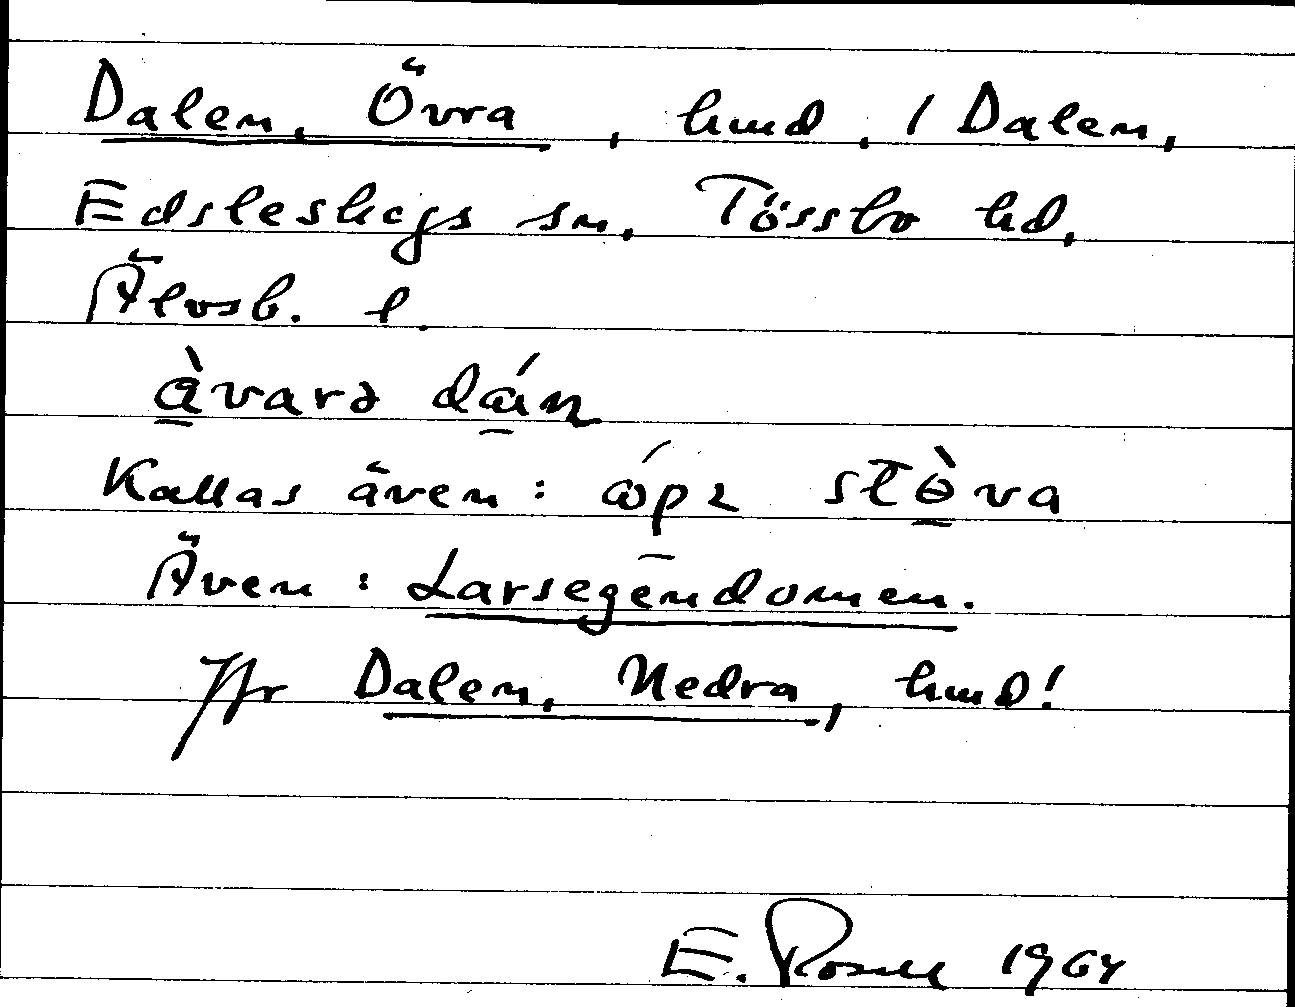 Dalen, Övra, hmd. / Dalen,
Edsleskogs sn. Tössbo hd.
Älvsb. l.
àvarə dán
Kallas även: ópɩ stòva
Även: Larsegēndomen.
Jfr Dalen, Nedra, hmd!
E. Rosell 1964